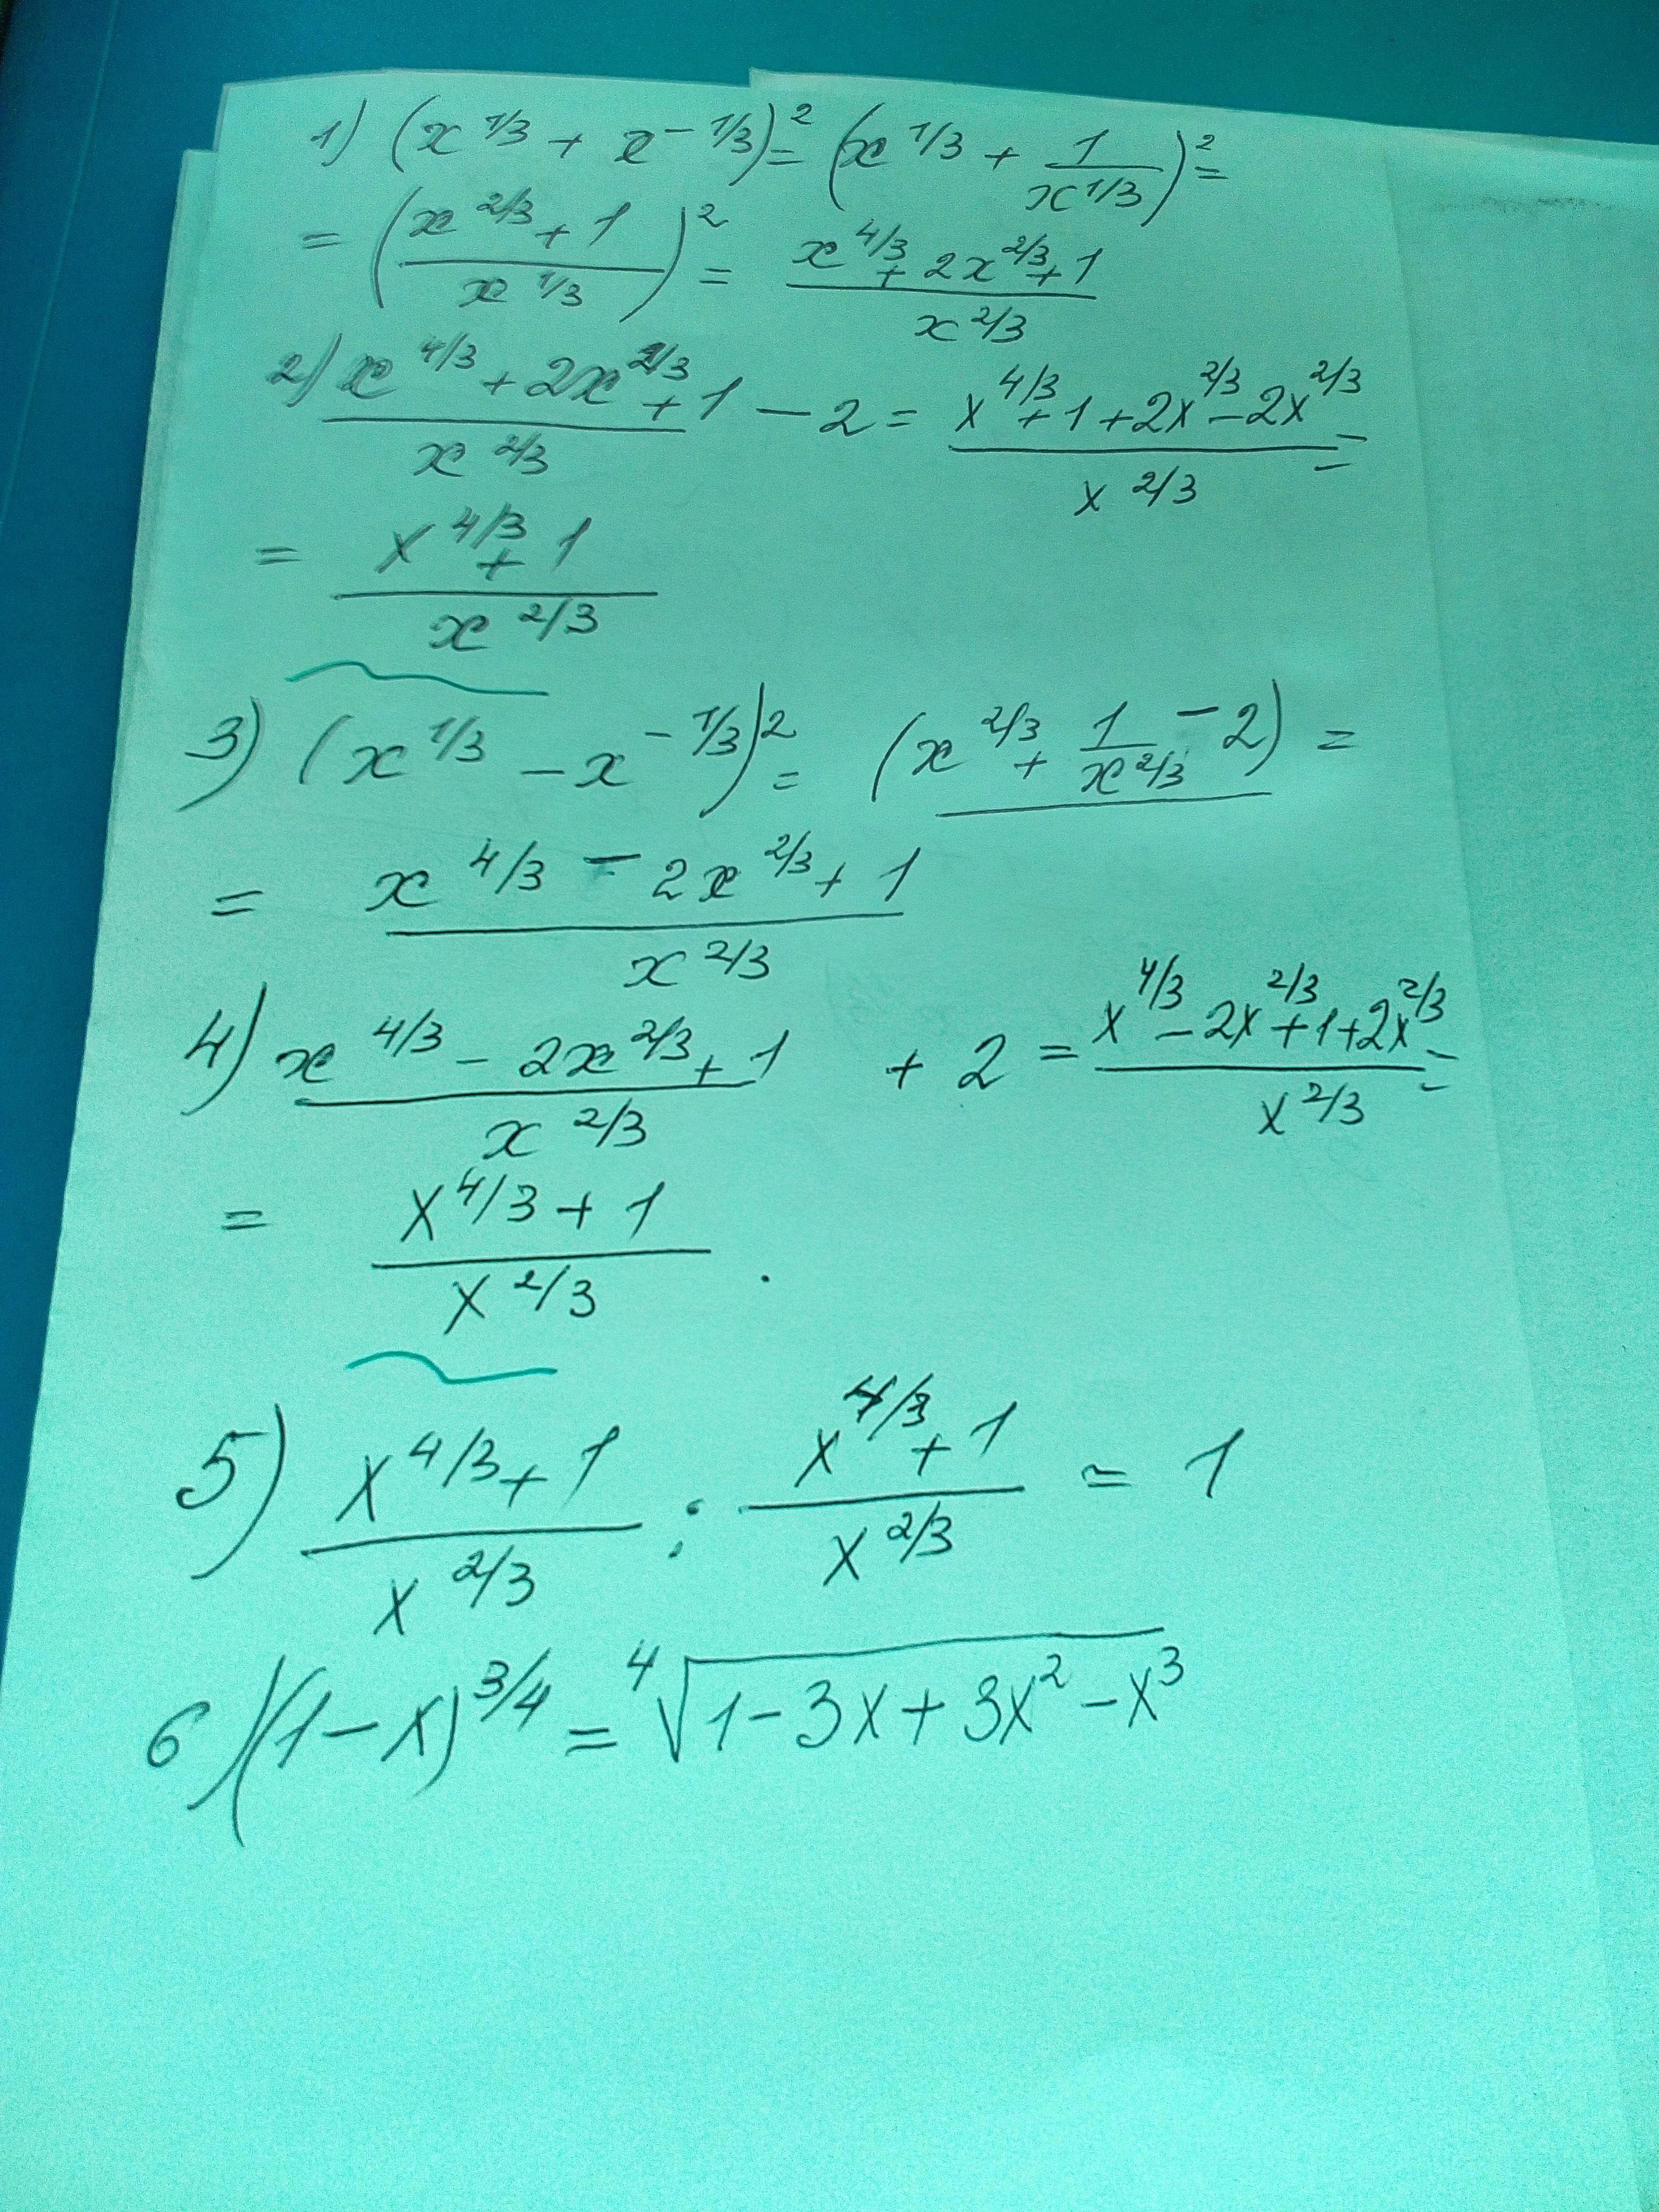 1) (x^{1/3} + x^{-1/3})^2 = (x^{1/3} + \frac{1}{x^{1/3}})^2 =
= (\frac{x^{2/3} + 1}{x^{1/3}})^2 = \frac{x^{4/3} + 2x^{2/3} + 1}{x^{2/3}}
2) \frac{x^{4/3} + 2x^{2/3} + 1}{x^{2/3}} - 2 = \frac{x^{4/3} + 1 + 2x^{2/3} - 2x^{2/3}}{x^{2/3}} =
= \frac{x^{4/3} + 1}{x^{2/3}}
3) (x^{1/3} - x^{-1/3})^2 = (x^{2/3} + \frac{1}{x^{2/3}} - 2) =
= \frac{x^{4/3} - 2x^{2/3} + 1}{x^{2/3}}
4) \frac{x^{4/3} - 2x^{2/3} + 1}{x^{2/3}} + 2 = \frac{x^{4/3} - 2x^{2/3} + 1 + 2x^{2/3}}{x^{2/3}} =
= \frac{x^{4/3} + 1}{x^{2/3}}.
5) \frac{x^{4/3} + 1}{x^{2/3}} : \frac{x^{4/3} + 1}{x^{2/3}} = 1
6) (1 - x)^{3/4} = \sqrt[4]{1 - 3x + 3x^2 - x^3}